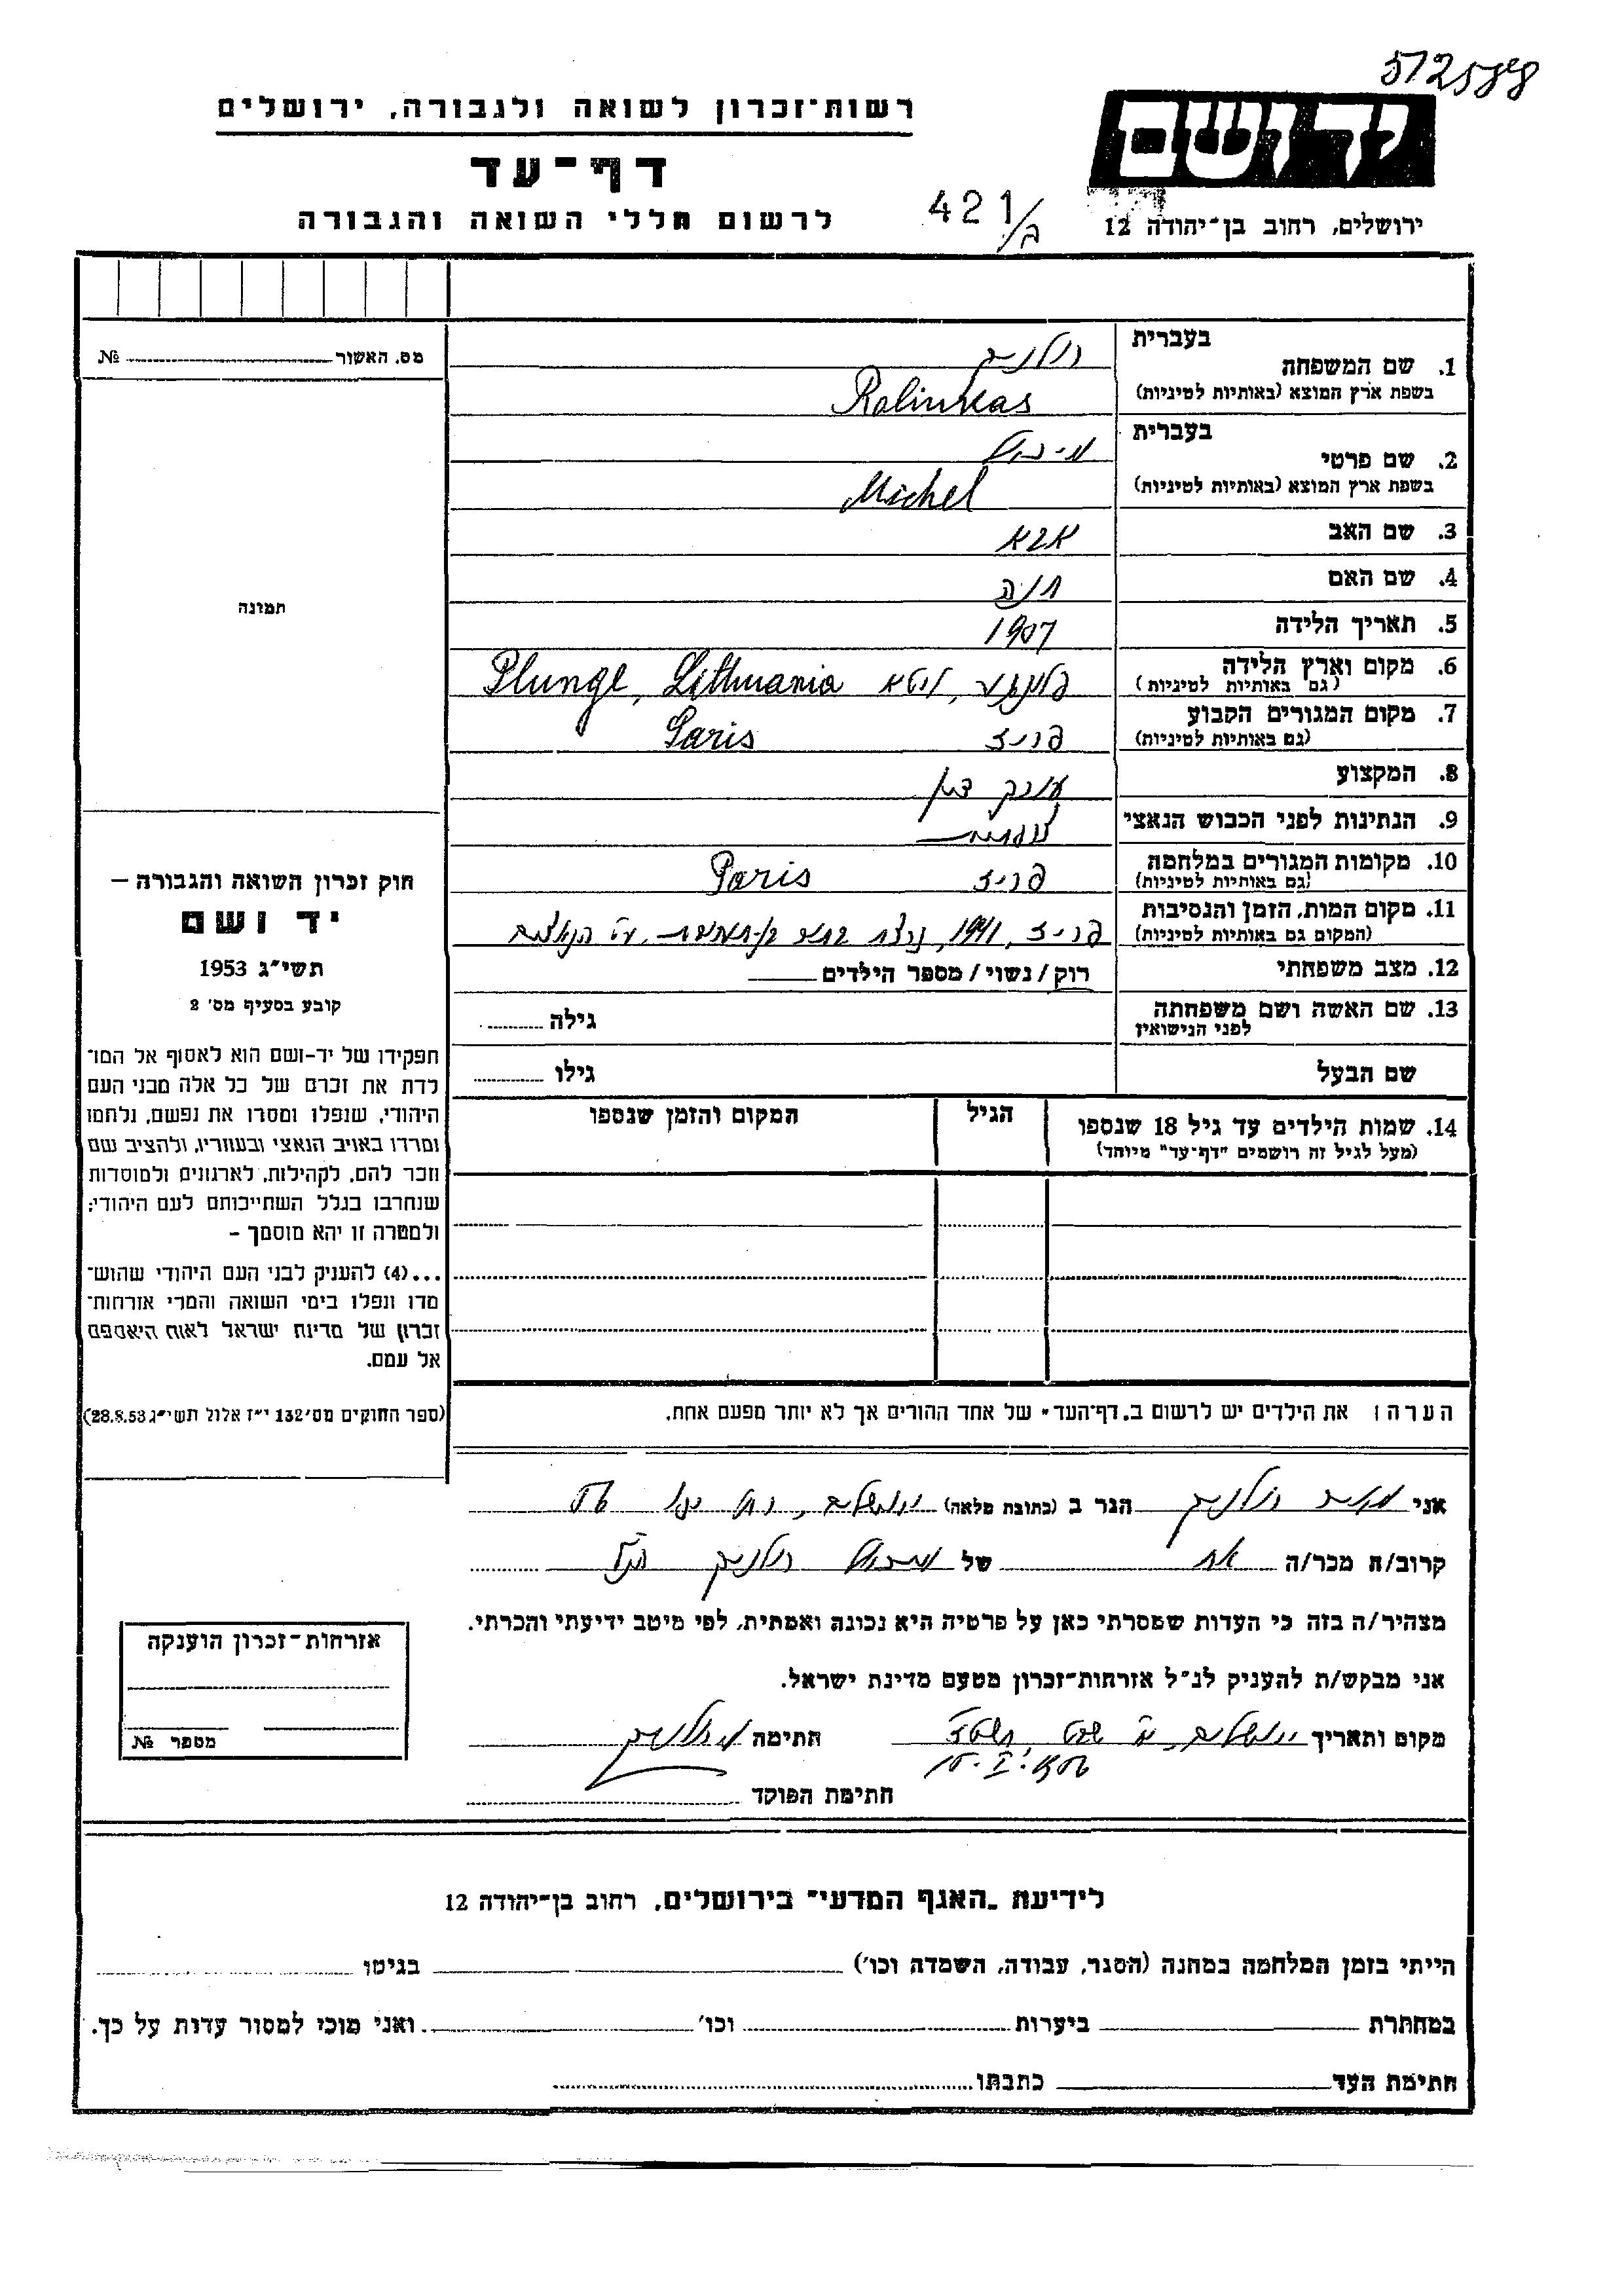 512588
רשות-זכרון לשואה ולגבורה, ירושלים
יד ושם
דף-עד
לרשום חללי השואה והגבורה
421/ב
ירושלים, רחוב בן-יהודה 12
בעברית
1. שם המשפחה
בשפת ארץ המוצא (באותיות לטיניות) Rolinkas
בעברית מיכאל
2. שם פרטי
בשפת ארץ המוצא (באותיות לטיניות) Michel
3. שם האב אבא
4. שם האם חנה
5. תאריך הלידה 1907
6. מקום וארץ הלידה
(גם באותיות לטיניות) ליטא Plunge, Lithuania
7. מקום המגורים הקבוע
(גם באותיות לטיניות) פריז Paris
8. המקצוע
9. הנתינות לפני הכבוש הנאצי
10. מקומות המגורים במלחמה
(גם באותיות לטיניות) פריז Paris
11. מקום המות, הזמן והנסיבות
(המקום גם באותיות לטיניות) פריז, 1941,
12. מצב משפחתי רוק / נשוי / מספר הילדים
13. שם האשה ושם משפחתה
לפני הנישואין
גילה
שם הבעל גילו
14. שמות הילדים עד גיל 18 שנספו
(מעל לגיל זה רושמים "דף-עד" מיוחד)
הגיל
המקום והזמן שנספו
הערה: את הילדים יש לרשום ב„דף-העד" של אחד ההורים אך לא יותר מפעם אחת.
מס. האשור №
תמונה
חוק זכרון השואה והגבורה —
יד ושם
תשי״ג 1953
קובע בסעיף מס׳ 2
תפקידו של יד-ושם הוא לאסוף אל המו־
לדת את זכרם של כל אלה מבני העם
היהודי, שנפלו ומסרו את נפשם, נלחמו
ומרדו באויב הנאצי ובעוזריו, ולהציב שם
וזכר להם, לקהילות, לארגונים ולמוסדות
שנחרבו בגלל השתייכותם לעם היהודי;
ולמטרה זו יהא מוסמך –
...(4) להעניק לבני העם היהודי שהוש־
מדו ונפלו בימי השואה והמרי אזרחות־
זכרון של מדינת ישראל לאות היאספם
אל עמם.
(ספר החוקים מס׳ 132 י״ז אלול תשי״ג 28.8.53)
אני הגר ב (כתובת מלאה) ירושלים,
קרוב/ה מכר/ה אח של מיכאל
מצהיר/ה בזה כי העדות שמסרתי כאן על פרטיה היא נכונה ואמתית, לפי מיטב ידיעתי והכרתי.
אני מבקש/ת להעניק לנ״ל אזרחות-זכרון מטעם מדינת ישראל.
מקום ותאריך ירושלים, חתימה
חתימת הפוקד
אזרחות-זכרון הוענקה
מספר №
לידיעת „האגף המדעי" בירושלים, רחוב בן-יהודה 12
הייתי בזמן המלחמה במחנה (הסגר, עבודה, השמדה וכו׳) בגיטו
במחתרת ביערות וכו׳ ואני מוכן למסור עדות על כך.
חתימת העד כתבתו